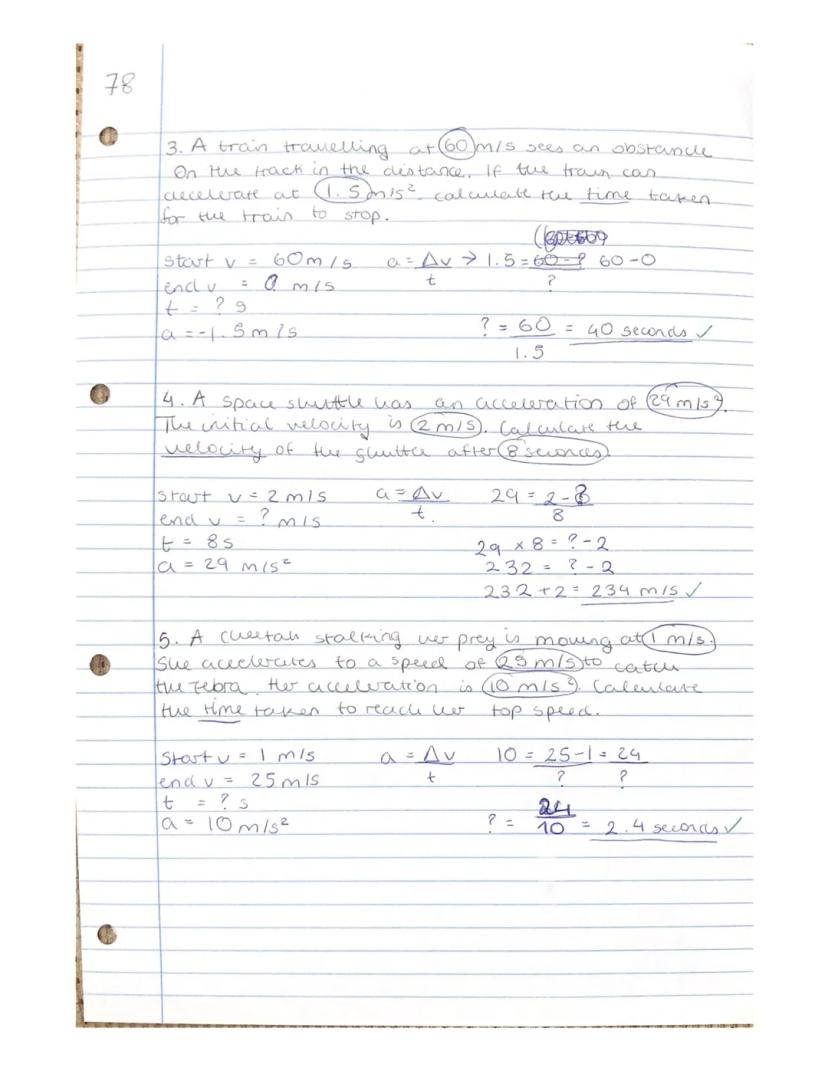 78
3. A train travelling at 60 m/s sees an obstancle
On the track in the distance. If the train can
decelerate at 1.5 m/s². calculate the time taken
for the train to stop.
start v = 60m/s a = Δv → 1.5 = 60-? 60-0
end v = 0 m/s t ?
t = ? s
a = -1.5m/s ? = 60 = 40 seconds ✓
1.5
4. A space shuttle has an acceleration of 29 m/s².
The initial velocity is 2 m/s. Calculate the
velocity of the shuttle after 8 seconds
start v = 2 m/s a = Δv 29 = 2-?
end v = ? m/s t. 8
t = 8s 29 × 8 = ? - 2
a = 29 m/s² 232 = ? - 2
232 + 2 = 234 m/s ✓
5. A cheetah stalking her prey is moving at 1 m/s.
She accelerates to a speed of 25 m/s to catch
the zebra. Her acceleration is 10 m/s². Calculate
the time taken to reach her top speed.
Start v = 1 m/s a = Δv 10 = 25-1 = 24
end v = 25m/s t ? ?
t = ? s
a = 10 m/s² ? = 24 = 2.4 seconds ✓
10